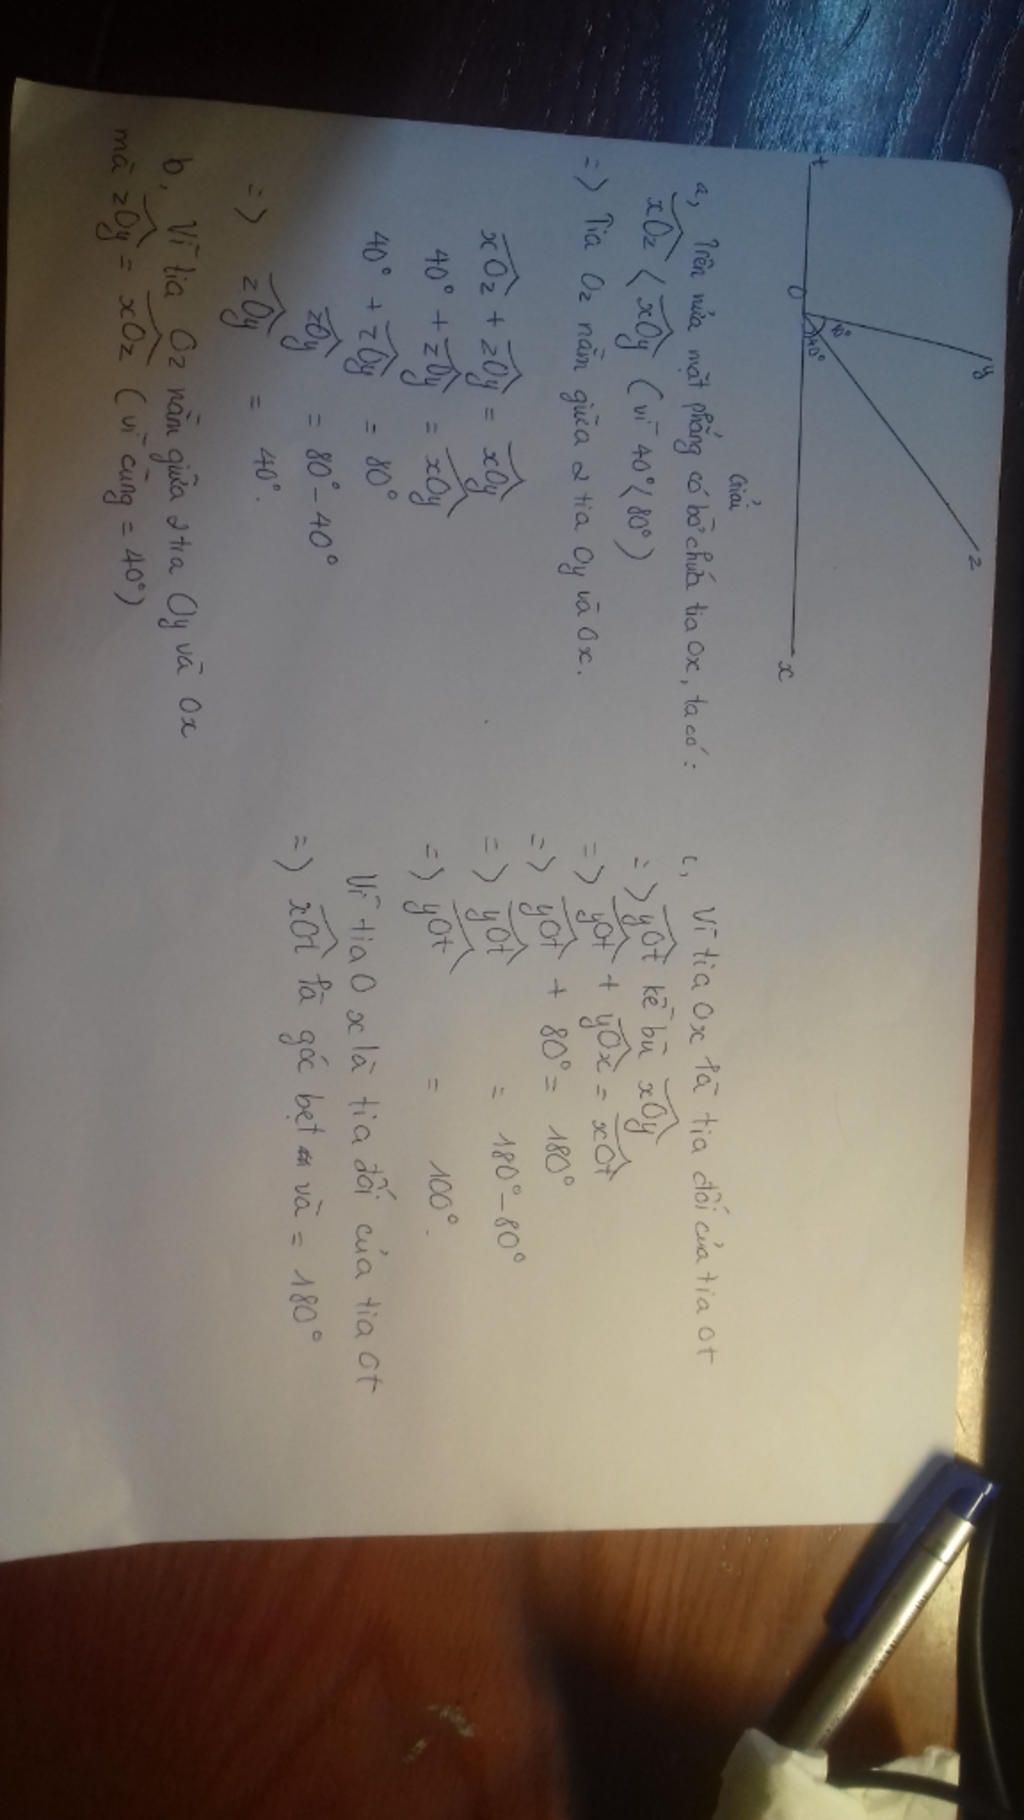 t
O
x
y
z
40°
40°
Giải
a, Trên nửa mặt phẳng có bờ chứa tia Ox, ta có:
xOz < xOy (vì 40° < 80°)
=> Tia Oz nằm giữa 2 tia Oy và Ox.
xOz + zOy = xOy
40° + zOy = xOy
40° + zOy = 80°
zOy = 80° - 40°
=> zOy = 40°.
b, Vì tia Oz nằm giữa 2 tia Oy và Ox
mà zOy = xOz (vì cùng = 40°)
c, Vì tia Ox là tia đối của tia Ot
=> yOt kề bù xOy
=> yOt + yOx = xOt
=> yOt + 80° = 180°
=> yOt = 180° - 80°
=> yOt = 100°.
Vì tia Ox là tia đối của tia Ot
=> xOt là góc bẹt và = 180°